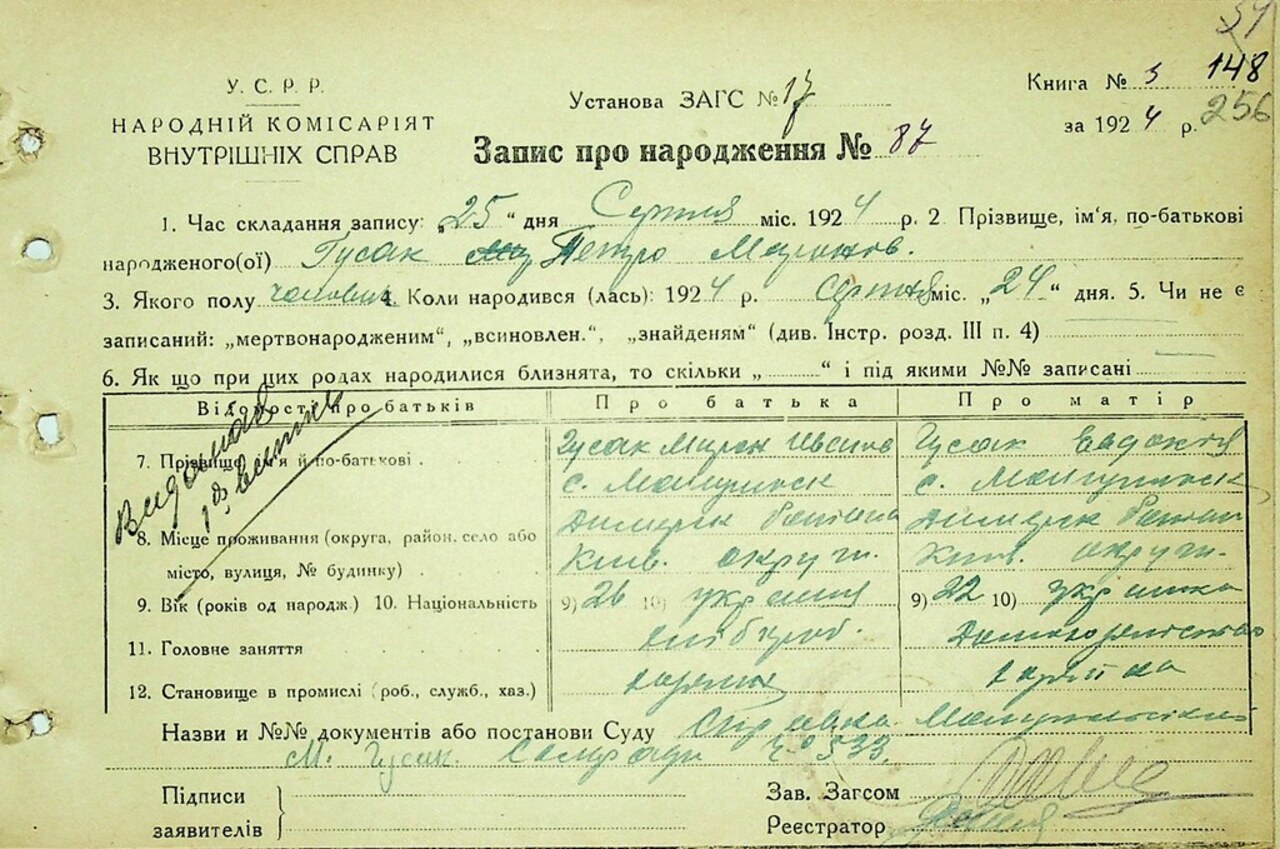 У. С. Р. Р.
НАРОДНІЙ КОМІСАРІЯТ
ВНУТРІШНІХ СПРАВ
Установа ЗАГС № 17
Книга № 5 148
за 1924 р. 256
Запис про народження № 87
1. Час складання запису: „25" дня Серпня міс. 1924 р. 2 Прізвище, ім'я, по-батькові
народженого(ої) Гусак Петро Миронов.
3. Якого полу чоловіч. 4. Коли народився (лась): 1924 р. Серпня міс. „24" дня. 5. Чи не є
записаний: „мертвонародженим", „всиновлен.", „знайденям" (див. Інстр. розд. III п. 4)
6. Як що при цих родах народилися близнята, то скільки „ " і під якими №№ записані
Відомості про батьків Про батька Про матір
7. Прізвище, ім'я й по-батькові Гусак Мирон Іванов Гусак Евдокія
8. Місце проживання (округа, район, село або
місто, вулиця, № будинку) Київ. округи. Київ. округи.
9. Вік (років од народж.) 10. Національність 9) 26 10) 9) 22 10) українка
11. Головне заняття хлібороб.
12. Становище в промислі (роб., служб., хаз.)
Назви и №№ документів або постанови Суду Справка
М. Гусак. № 533.
Підписи
заявителів
Зав. Загсом
Реєстратор